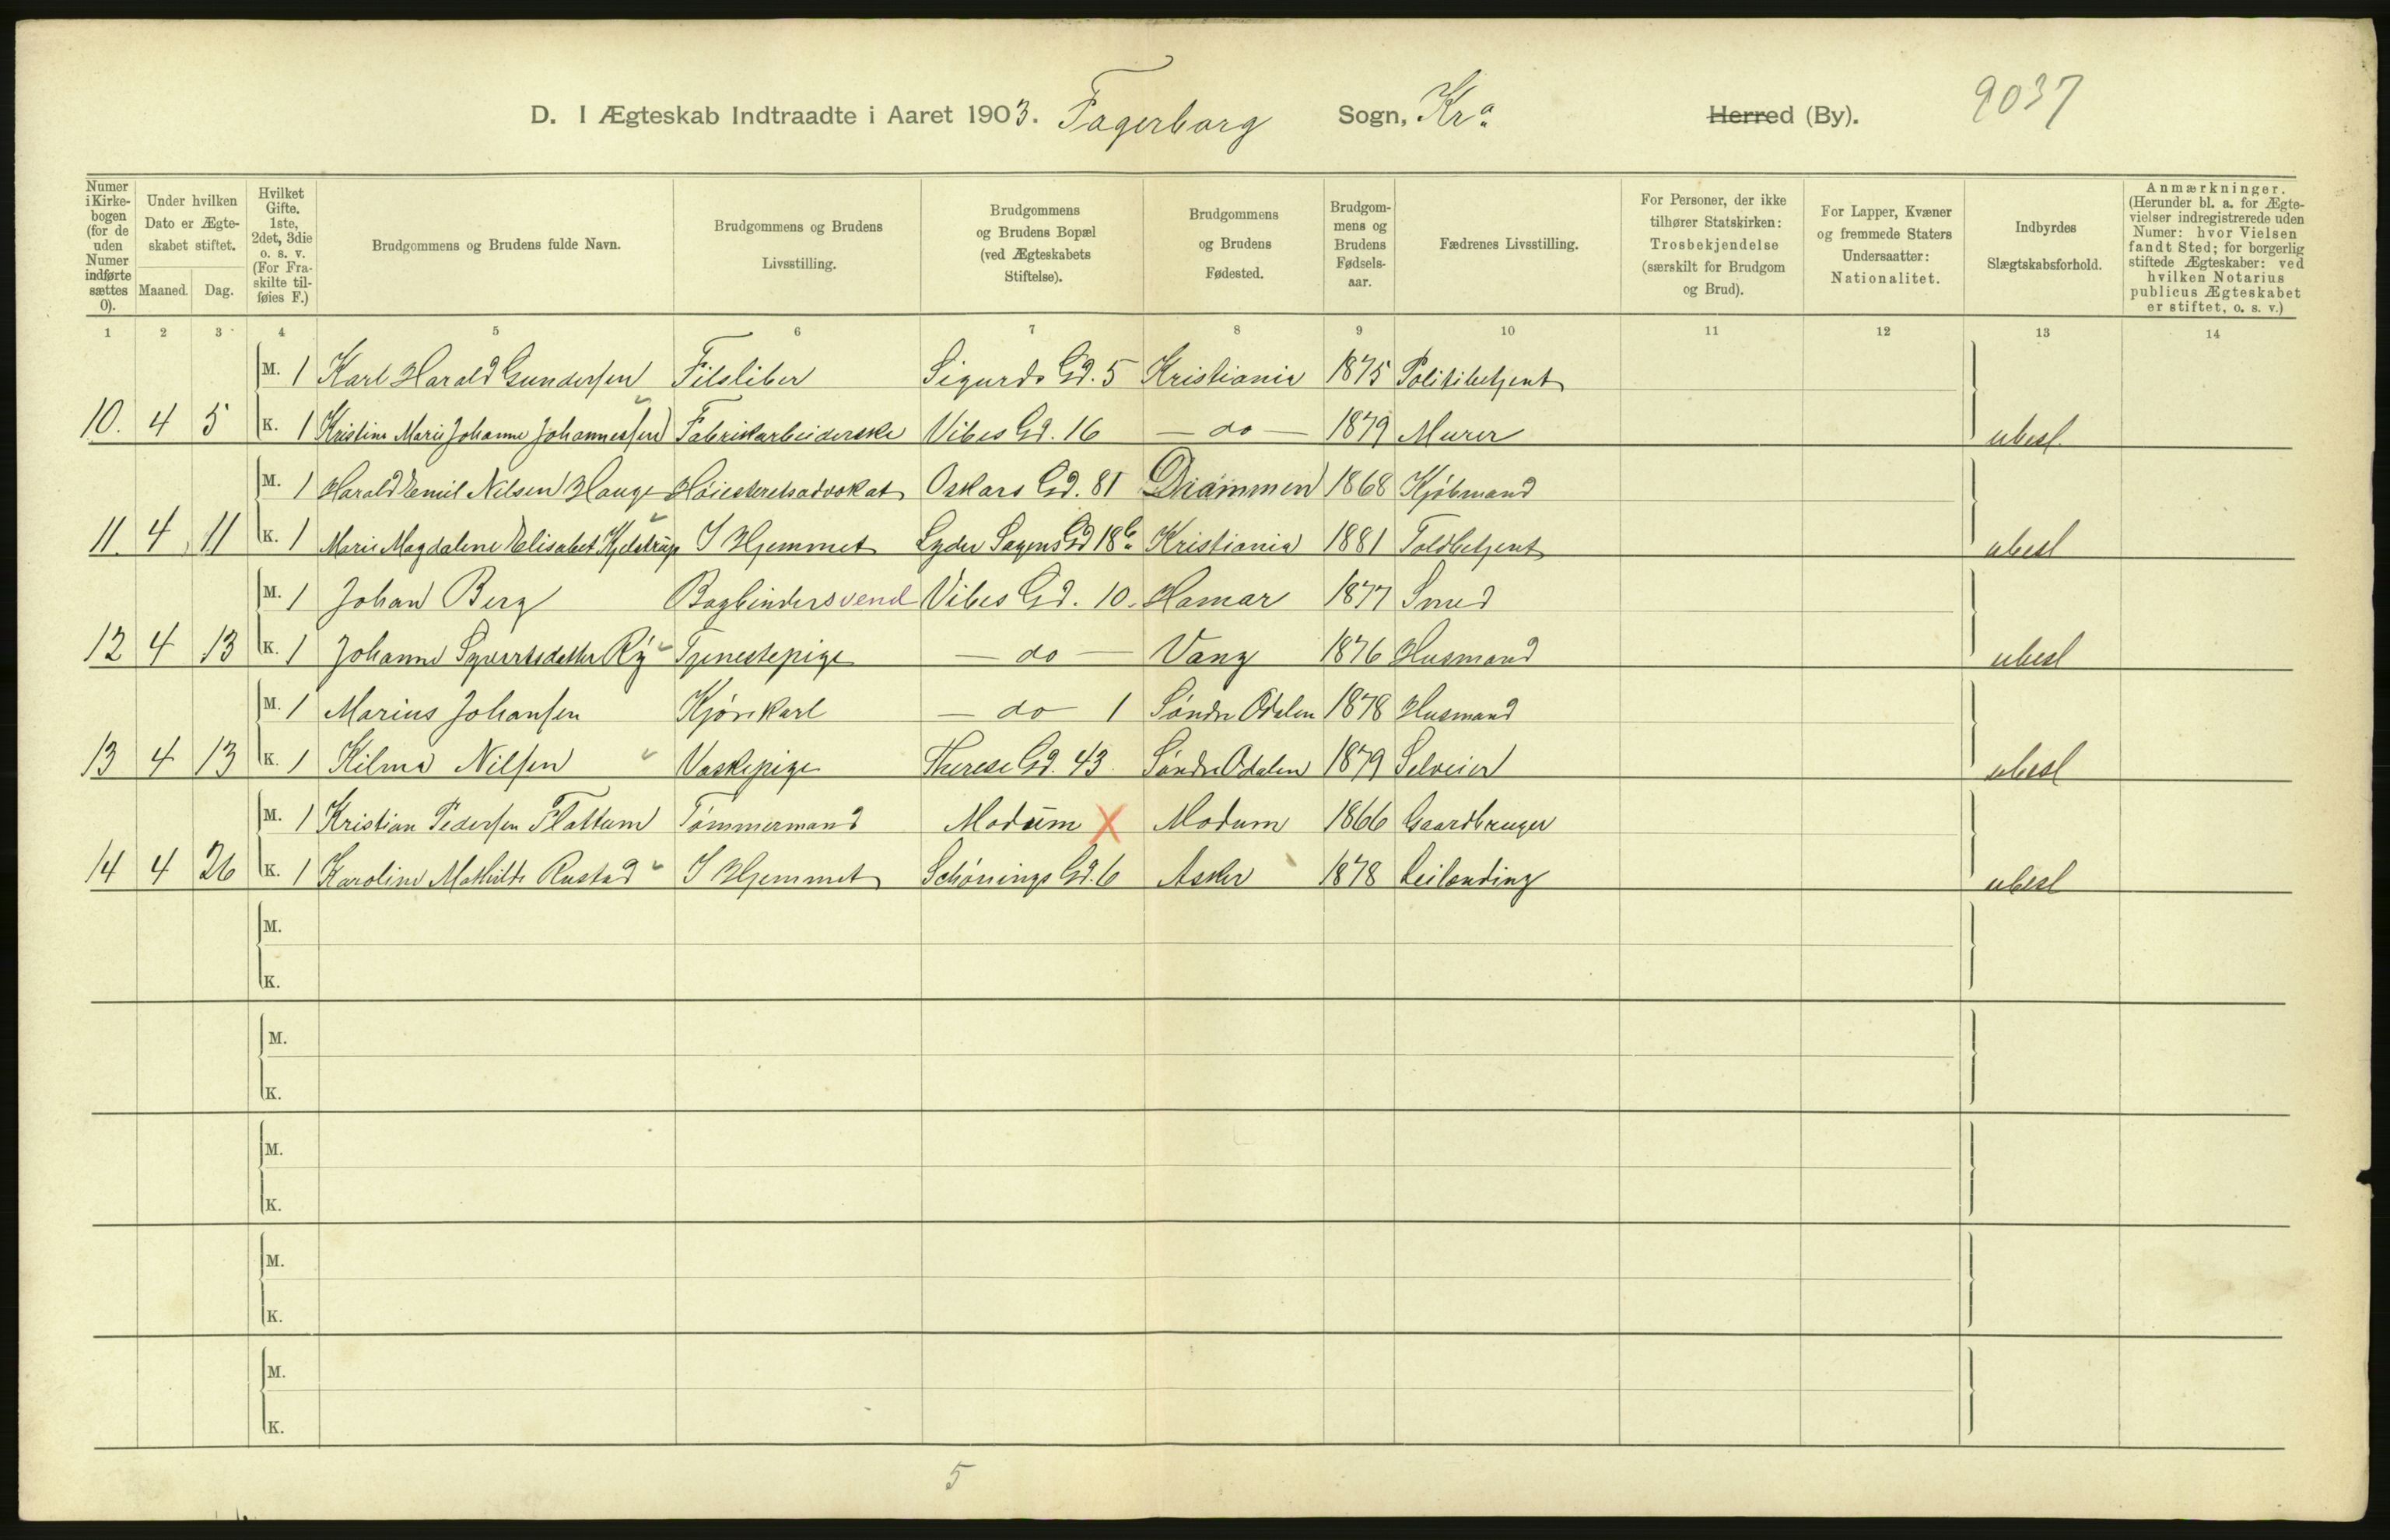 D. I Ægteskab Indtraadte i Aaret 1903. Fagerborg Sogn, Kra. Herred (By). 9037
Numer i Kirkebogen (for de uden Numer indførte sættes 0).
Under hvilken Dato er Ægteskabet stiftet.
Maaned. Dag.
Hvilket Gifte. 1ste, 2det, 3die o. s. v. (For Fraskilte tilføies F.)
Brudgommens og Brudens fulde Navn.
Brudgommens og Brudens Livsstilling.
Brudgommens og Brudens Bopæl (ved Ægteskabets Stiftelse).
Brudgommens og Brudens Fødested.
Brudgommens og Brudens Fødselsaar.
Fædrenes Livsstilling.
For Personer, der ikke tilhører Statskirken: Trosbekjendelse (særskilt for Brudgom og Brud).
For Lapper, Kvæner og fremmede Staters Undersaatter: Nationalitet.
Indbyrdes Slægtskabsforhold.
Anmærkninger. (Herunder bl. a. for Ægtevielser indregistrerede uden Numer: hvor Vielsen fandt Sted; for borgerlig stiftede Ægteskaber: ved hvilken Notarius publicus Ægteskabet er stiftet, o. s. v.)
1 2 3 4 5 6 7 8 9 10 11 12 13 14
M. 1 Karl Harald Gundersen Filsliber Sigurds Gd. 5 Kristiania 1875 Politibetjent
10. 4 5 K. 1 Kristine Marie Johanne Johannessen Fabrikarbeiderske Vibes Gd. 16 — do — 1879 Murer ubesl.
M. 1 Harald Emil Nilsen Hauge Høiesteretsadvokat Oskars Gd. 81 Drammen 1868 Kjøbmand
11. 4 11 K. 1 Marie Magdalene Elisabet Kjelstrup I Hjemmet Lyder Sagens Gd 18b. Kristiania 1881 Toldbetjent ubesl
M. 1 Johan Berg Bogbindersvend Vibes Gd. 10. Hamar 1877 Smed
12 4 13 K. 1 Johanne Syvertsdatter Ry Tjenestepige — do — Vang 1876 Husmand ubesl
M. 1 Marius Johansen Kjørekarl — do 1 Søndre Odalen 1878 Husmand
13 4 13 K. 1 Hilma Nilsen Vaskepige Therese Gd. 43. Søndre Odalen 1879 Selveier ubesl
M. 1 Kristian Pedersen Flattum Tømmermand Modum X Modum 1866 Gaardbruger
14 4 26 K. 1 Karoline Mathilde Rustad I Hjemmet Schønings Gd. 6 Asker 1878 Leilending ubesl
M.
K.
M.
K.
M.
K.
M.
K.
M.
K.
5